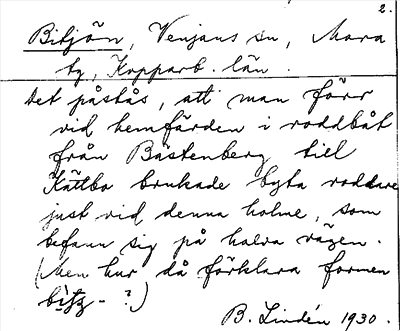 2.
Bitjön, Venjans sn, Mora
tg, Kopparb. län.
Det påstås, att man förr
vid hemfärden i roddbåt
från Bästenberg till
Kättbo brukade byta roddare
just vid denna holme, som
befann sig på halva vägen.
(Men hur då förklara formen
bitz- ?)
B. Lindén 1930.